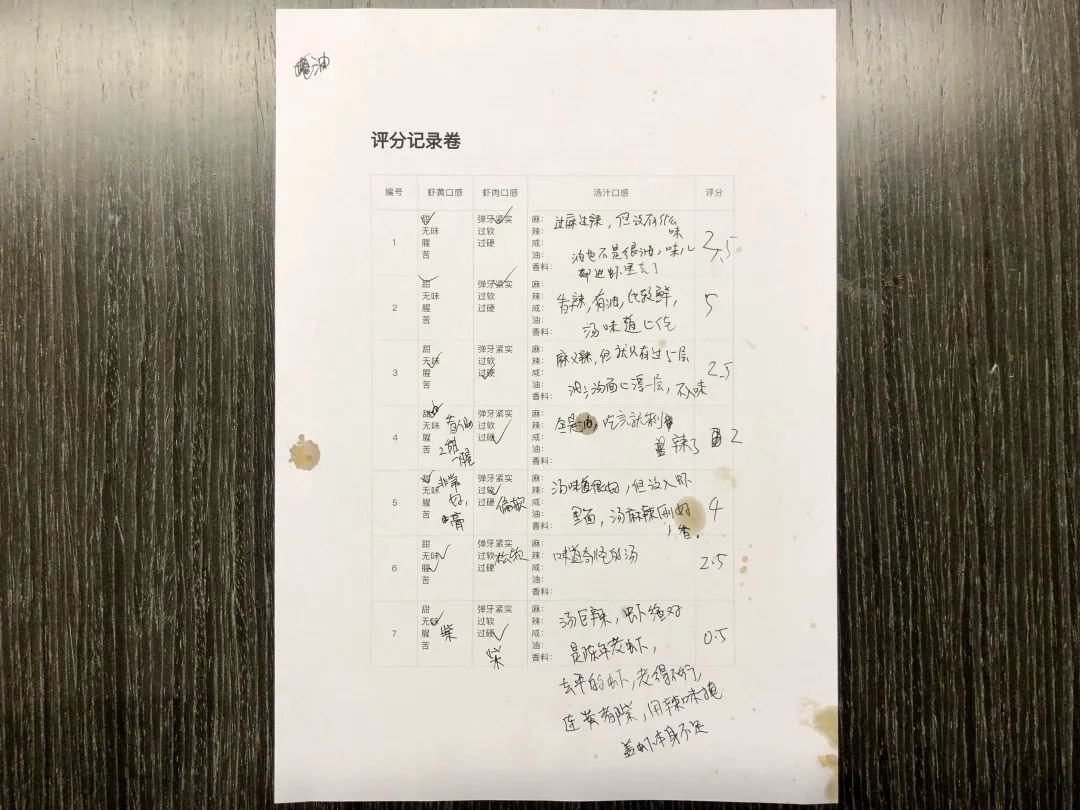 油
评分记录卷
编号 虾黄口感 虾肉口感 汤汁口感 评分
1
甜
无味
腥
苦
弹牙紧实
过软
过硬
麻：
辣：
咸：
油：
香料：
过麻过辣，但没有什么
味
油也不是很油，味儿
都进虾里去了
3.5
2
甜
无味
腥
苦
弹牙紧实
过软
过硬
麻：
辣：
咸：
油：
香料：
香辣，有油，比较鲜，
汤味道
5
3
甜
无味
腥
苦
弹牙紧实
过软
过硬
麻：
辣：
咸：
油：
香料：
麻又辣，但就只有这一层
油，汤面上漂一层，不入味
2.5
4
甜
无味
腥
苦
弹牙紧实
过软
过硬
麻：
辣：
咸：
油：
香料：
腥
全是油，吃完就剩
辣了
2
5
甜
无味
腥
苦
非常
好，
膏
弹牙紧实
过软
过硬
偏软
麻：
辣：
咸：
油：
香料：
汤味道很好，但没入虾
里面，汤麻辣刚好
4
6
甜
无味
腥
苦
弹牙紧实
过软
过硬
松软
麻：
辣：
咸：
油：
香料：
味道奇怪的汤
2.5
7
甜
无味
腥
苦
柴
弹牙紧实
过软
过硬
柴
麻：
辣：
咸：
油：
香料：
汤巨辣，虾绝对
是陈年老虾，
去年的虾，老得不行，
连黄都柴，用辣味掩
盖虾本身不足
0.5